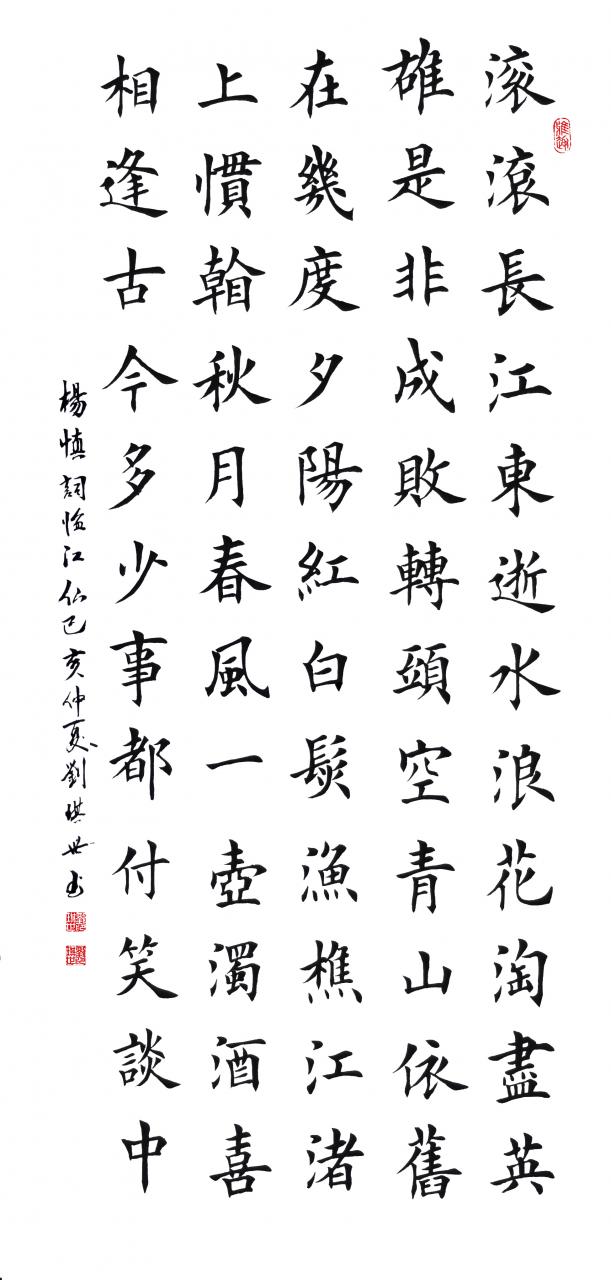 滚滾長江東逝水浪花淘盡英
雄是非成敗轉頭空青山依舊
在幾度夕陽紅白髮漁樵江渚
上慣秋月春風一壺濁酒喜
相逢古今多少事都付笑談中
楊慎詞臨江仙己亥仲夏劉琪世書